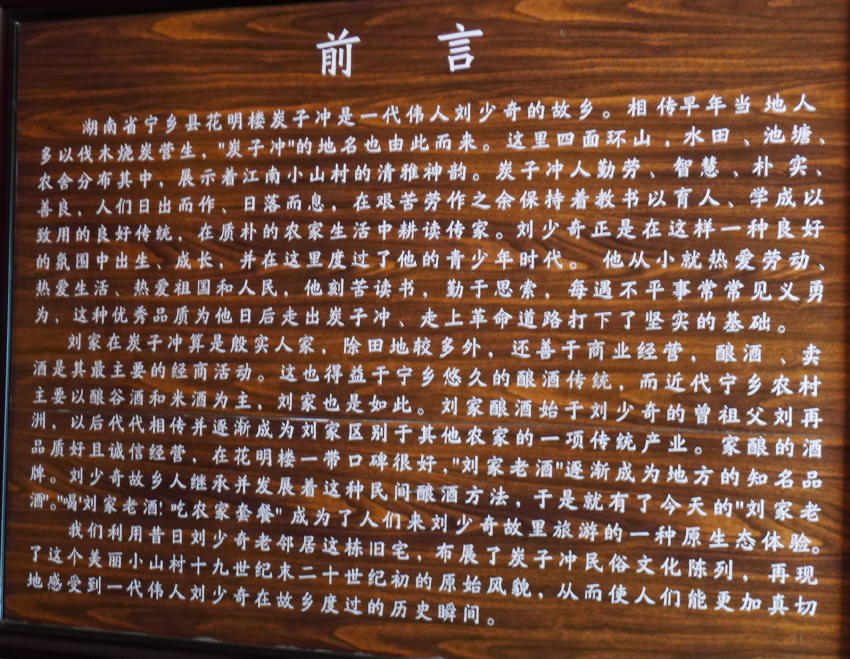 前言
湖南省宁乡县花明楼炭子冲是一代伟人刘少奇的故乡。相传早年当地人
多以伐木烧炭营生，"炭子冲"的地名也由此而来。这里四面环山，水田、池塘、
农舍分布其中，展示着江南小山村的清雅神韵。炭子冲人勤劳、智慧、朴实、
善良，人们日出而作、日落而息，在艰苦劳作之余保持着教书以育人、学成以
致用的良好传统，在质朴的农家生活中耕读传家。刘少奇正是在这样一种良好
的氛围中出生、成长，并在这里度过了他的青少年时代。他从小就热爱劳动、
热爱生活、热爱祖国和人民，他刻苦读书，勤于思索，每遇不平事常常见义勇
为，这种优秀品质为他日后走出炭子冲、走上革命道路打下了坚实的基础。
刘家在炭子冲算是殷实人家，除田地较多外，还善于商业经营，酿酒、卖
酒是其最主要的经商活动。这也得益于宁乡悠久的酿酒传统，而近代宁乡农村
主要以酿谷酒和米酒为主，刘家也是如此。刘家酿酒始于刘少奇的曾祖父刘再
洲，以后代代相传并逐渐成为刘家区别于其他农家的一项传统产业。家酿的酒
品质好且诚信经营，在花明楼一带口碑很好，"刘家老酒"逐渐成为地方的知名品
牌。刘少奇故乡人继承并发展着这种民间酿酒方法，于是就有了今天的"刘家老
酒"。"喝'刘家老酒!吃农家套餐"成为了人们来刘少奇故里旅游的一种原生态体验。
我们利用昔日刘少奇老邻居这栋旧宅，布展了炭子冲民俗文化陈列，再现
了这个美丽小山村十九世纪末二十世纪初的原始风貌，从而使人们能更加真切
地感受到一代伟人刘少奇在故乡度过的历史瞬间。